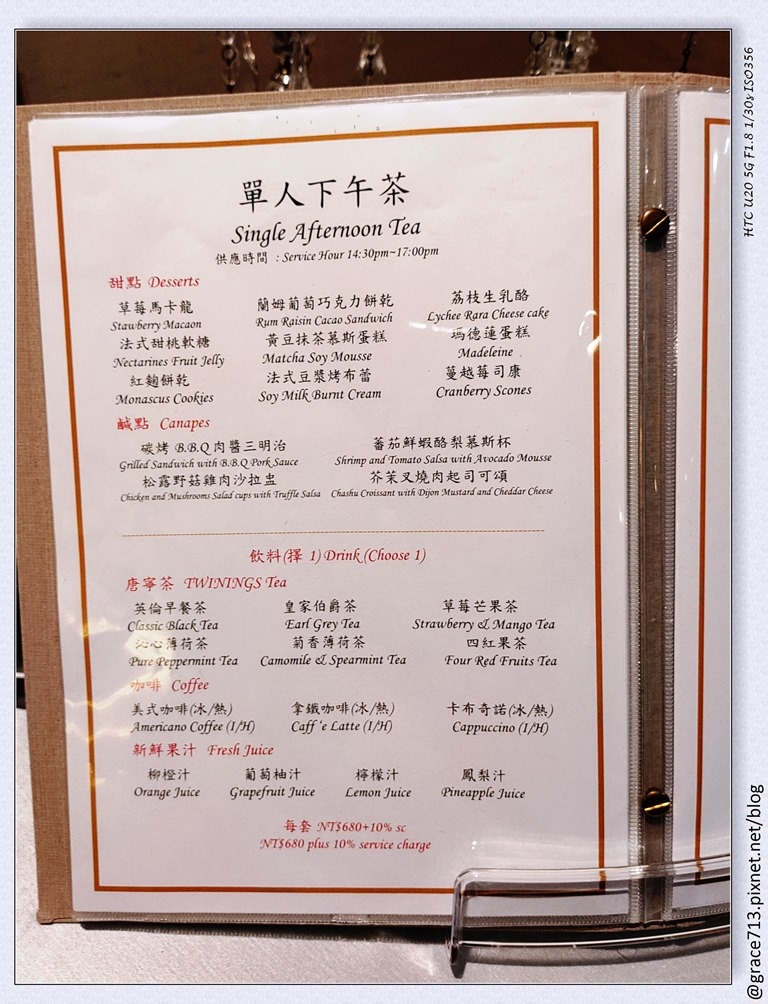 單人下午茶
Single Afternoon Tea
供應時間 : Service Hour 14:30pm~17:00pm
甜點 Desserts
草莓馬卡龍 蘭姆葡萄巧克力餅乾 荔枝生乳酪
Stawberry Macaon Rum Raisin Cacao Sandwich Lychee Rara Cheese cake
法式甜桃軟糖 黃豆抹茶慕斯蛋糕 瑪德蓮蛋糕
Nectarines Fruit Jelly Matcha Soy Mousse Madeleine
紅麴餅乾 法式豆漿烤布蕾 蔓越莓司康
Monascus Cookies Soy Milk Burnt Cream Cranberry Scones
鹹點 Canapes
碳烤 B.B.Q 肉醬三明治 蕃茄鮮蝦酪梨慕斯杯
Grilled Sandwich with B.B.Q Pork Sauce Shrimp and Tomato Salsa with Avocado Mousse
松露野菇雞肉沙拉盅 芥茉叉燒肉起司可頌
Chicken and Mushrooms Salad cups with Truffle Salsa Chashu Croissant with Dijon Mustard and Cheddar Cheese
飲料(擇 1) Drink (Choose 1)
唐寧茶 TWININGS Tea
英倫早餐茶 皇家伯爵茶 草莓芒果茶
Classic Black Tea Earl Grey Tea Strawberry & Mango Tea
沁心薄荷茶 菊香薄荷茶 四紅果茶
Pure Peppermint Tea Camomile & Spearmint Tea Four Red Fruits Tea
咖啡 Coffee
美式咖啡(冰/熱) 拿鐵咖啡(冰/熱) 卡布奇諾(冰/熱)
Americano Coffee (I/H) Caff 'e Latte (I/H) Cappuccino (I/H)
新鮮果汁 Fresh Juice
柳橙汁 葡萄柚汁 檸檬汁 鳳梨汁
Orange Juice Grapefruit Juice Lemon Juice Pineapple Juice
每套 NT$680+10% sc
NT$680 plus 10% service charge
HTC U20 5G F1.8 1/30s ISO356
@grace713.pixnet.net/blog